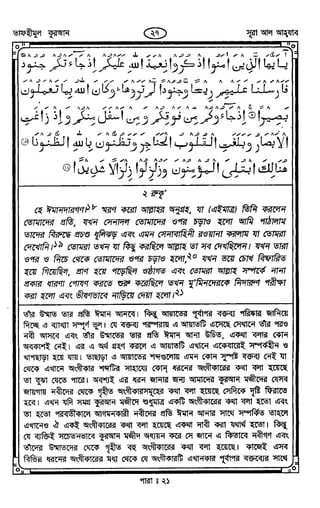 তাফহীমুল কুরআন ২৭ সূরা আল আহ্যাব
يٰٓاَيُّهَا الَّذِيْنَ اٰمَنُوا اذْكُرُوْا نِعْمَةَ اللّٰهِ عَلَيْكُمْ اِذْ جَآءَتْكُمْ جُنُوْدٌ
فَاَرْسَلْنَا عَلَيْهِمْ رِيْحًا وَّجُنُوْدًا لَّمْ تَرَوْهَا ۚ وَكَانَ اللّٰهُ بِمَا تَعْمَلُوْنَ
بَصِيْرًا ۚ اِذْ جَآءُوْكُمْ مِّنْ فَوْقِكُمْ وَمِنْ اَسْفَلَ مِنْكُمْ وَاِذْ زَاغَتِ
الْاَبْصَارُ وَبَلَغَتِ الْقُلُوْبُ الْحَنَاجِرَ وَتَظُنُّوْنَ بِاللّٰهِ الظُّنُوْنَا
هُنَالِكَ ابْتُلِيَ الْمُؤْمِنُوْنَ وَزُلْزِلُوْا زِلْزَالًا شَدِيْدًا
২ রুকূ'
হে ঈমানদারগণ!১৮ স্মরণ করো আল্লাহর অনুগ্রহ, যা (এইমাত্র) তিনি করলেন
তোমাদের প্রতি, যখন সেনাদল তোমাদের ওপর চড়াও হলো আমি পাঠালাম
তাদের বিরুদ্ধে প্রচণ্ড ধূলিঝড় এবং এমন সেনাবাহিনী রওয়ানা করলাম যা তোমরা
দেখোনি।১৯ তোমরা তখন যা কিছু করছিলে আল্লাহ তা সব দেখছিলেন। যখন তারা
ওপর ও নিচে থেকে তোমাদের ওপর চড়াও হলো,২০ যখন ভয়ে চোখ বিস্ফারিত
হয়ে গিয়েছিল, প্রাণ হয়ে পড়েছিল ওষ্ঠাগত এবং তোমরা আল্লাহ সম্পর্কে নানা
প্রকার ধারণা পোষণ করতে শুরু করেছিলে তখন মু'মিনদেরকে নিদারুণ পরীক্ষা
করা হলো এবং ভীষণভাবে নাড়িয়ে দেয়া হলো।২১
তাঁর উম্মাত তার প্রতি ঈমান আনবে। কিন্তু আয়াতের পূর্বাপর বক্তব্য পরিষ্কার জানিয়ে
দিচ্ছে এ ব্যাখ্যা সম্পূর্ণ ভুল। যে বক্তব্য পরম্পরায় এ আয়াতটি এসেছে সেখানে তাঁর পরও
নবী আসবে এবং তাঁর উম্মাতের তার প্রতি ঈমান আনা উচিত, একথা বলার কোন
অবকাশই নেই। এর এ অর্থ গ্রহণ করলে এ আয়াতটি এখানে একেবারেই সম্পর্কহীন ও
খাপছাড়া হয়ে যায়। তাছাড়া এ আয়াতের শব্দগুলোয় এমন কোন সুস্পষ্ট বক্তব্য নেই যা
থেকে এখানে অংগীকার শব্দটির সাহায্যে কোন্ ধরনের অংগীকারের কথা বলা হয়েছে
তা বুঝা যেতে পারে। অবশ্যই এর ধরন জানার জন্য আমাদের কুরআন মজীদের যেসব
জায়গায় নবীদের থেকে গৃহীত অংগীকারসমূহের কথা বলা হয়েছে সেদিকে দৃষ্টি ফিরাতে
হবে। এখন যদি সমগ্র কুরআন মজীদে শুধুমাত্র একটি অংগীকারের কথা বলা হতো এবং
তা হতো পরবর্তীকালে আগমনকারী নবীদের প্রতি ঈমান আনার সাথে সম্পর্কিত তাহলে
এখানেও ঐ একই অংগীকারের কথা বলা হয়েছে একথা দাবী করা যথার্থ হতো। কিন্তু
যে ব্যক্তিই সচেতনভাবে কুরআন মজীদ অধ্যয়ন করে সে জানে এ কিতাবে নবীগণ এবং
তাঁদের উম্মাতদের থেকে গৃহীত বহু অংগীকারের কথা বলা হয়েছে। কাজেই এসব
বিভিন্ন ধরনের অংগীকারের মধ্য থেকে যে অংগীকারটি এখানকার পূর্বাপর বক্তব্যের সাথে
পারা ঃ ২১